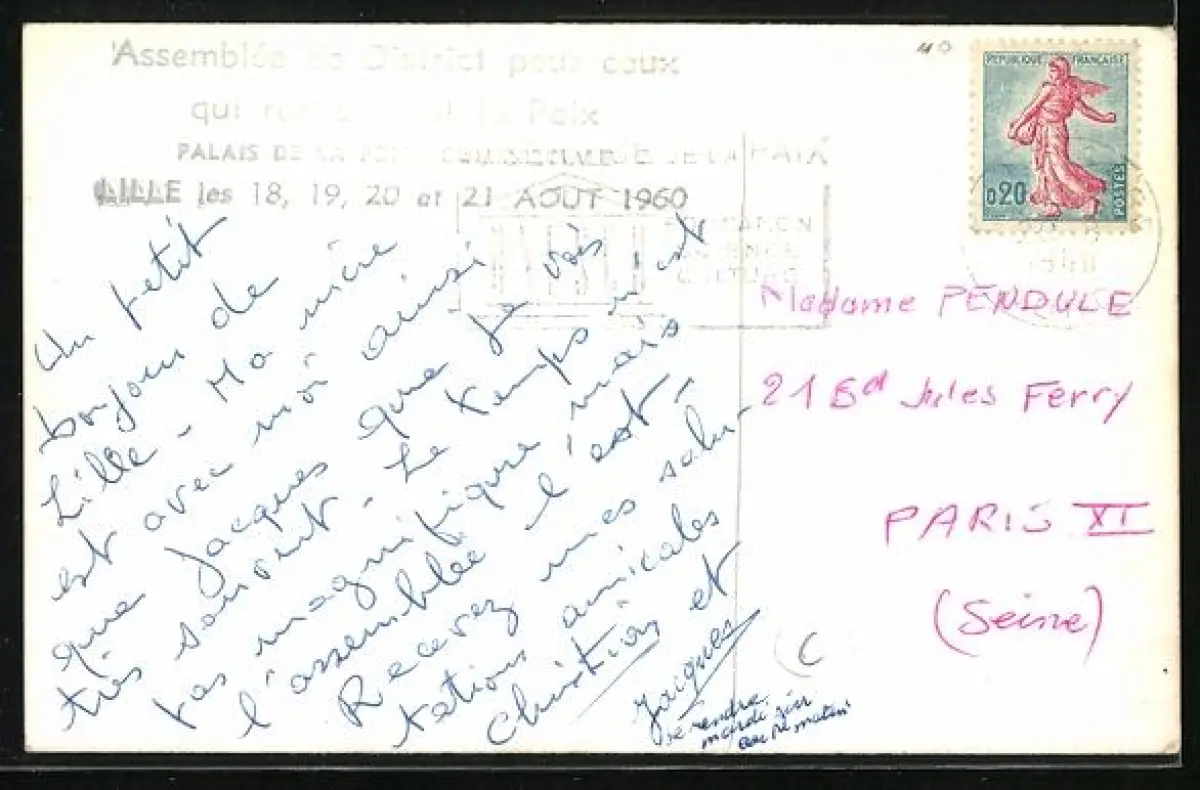 Assemblée de District pour ceux
qui
PALAIS DE LA
LILLE les 18, 19, 20 et 21 AOUT 1960
EDUCATION
SCIENCE
CULTURE
REPUBLIQUE FRANÇAISE
0,20
POSTES
Un petit
bonjour de
Lille - Ma mère
est avec moi ainsi
que Jacques que je vois
très souvent - Le temps n'est
pas magnifique, mais
l'assemblée l'est -
Recevez mes salu-
tations amicales
Christian et
Jacques
se rendre
mardi
matin
Madame PENDULE
21 Bd Jules Ferry
PARIS XI
(Seine)
C